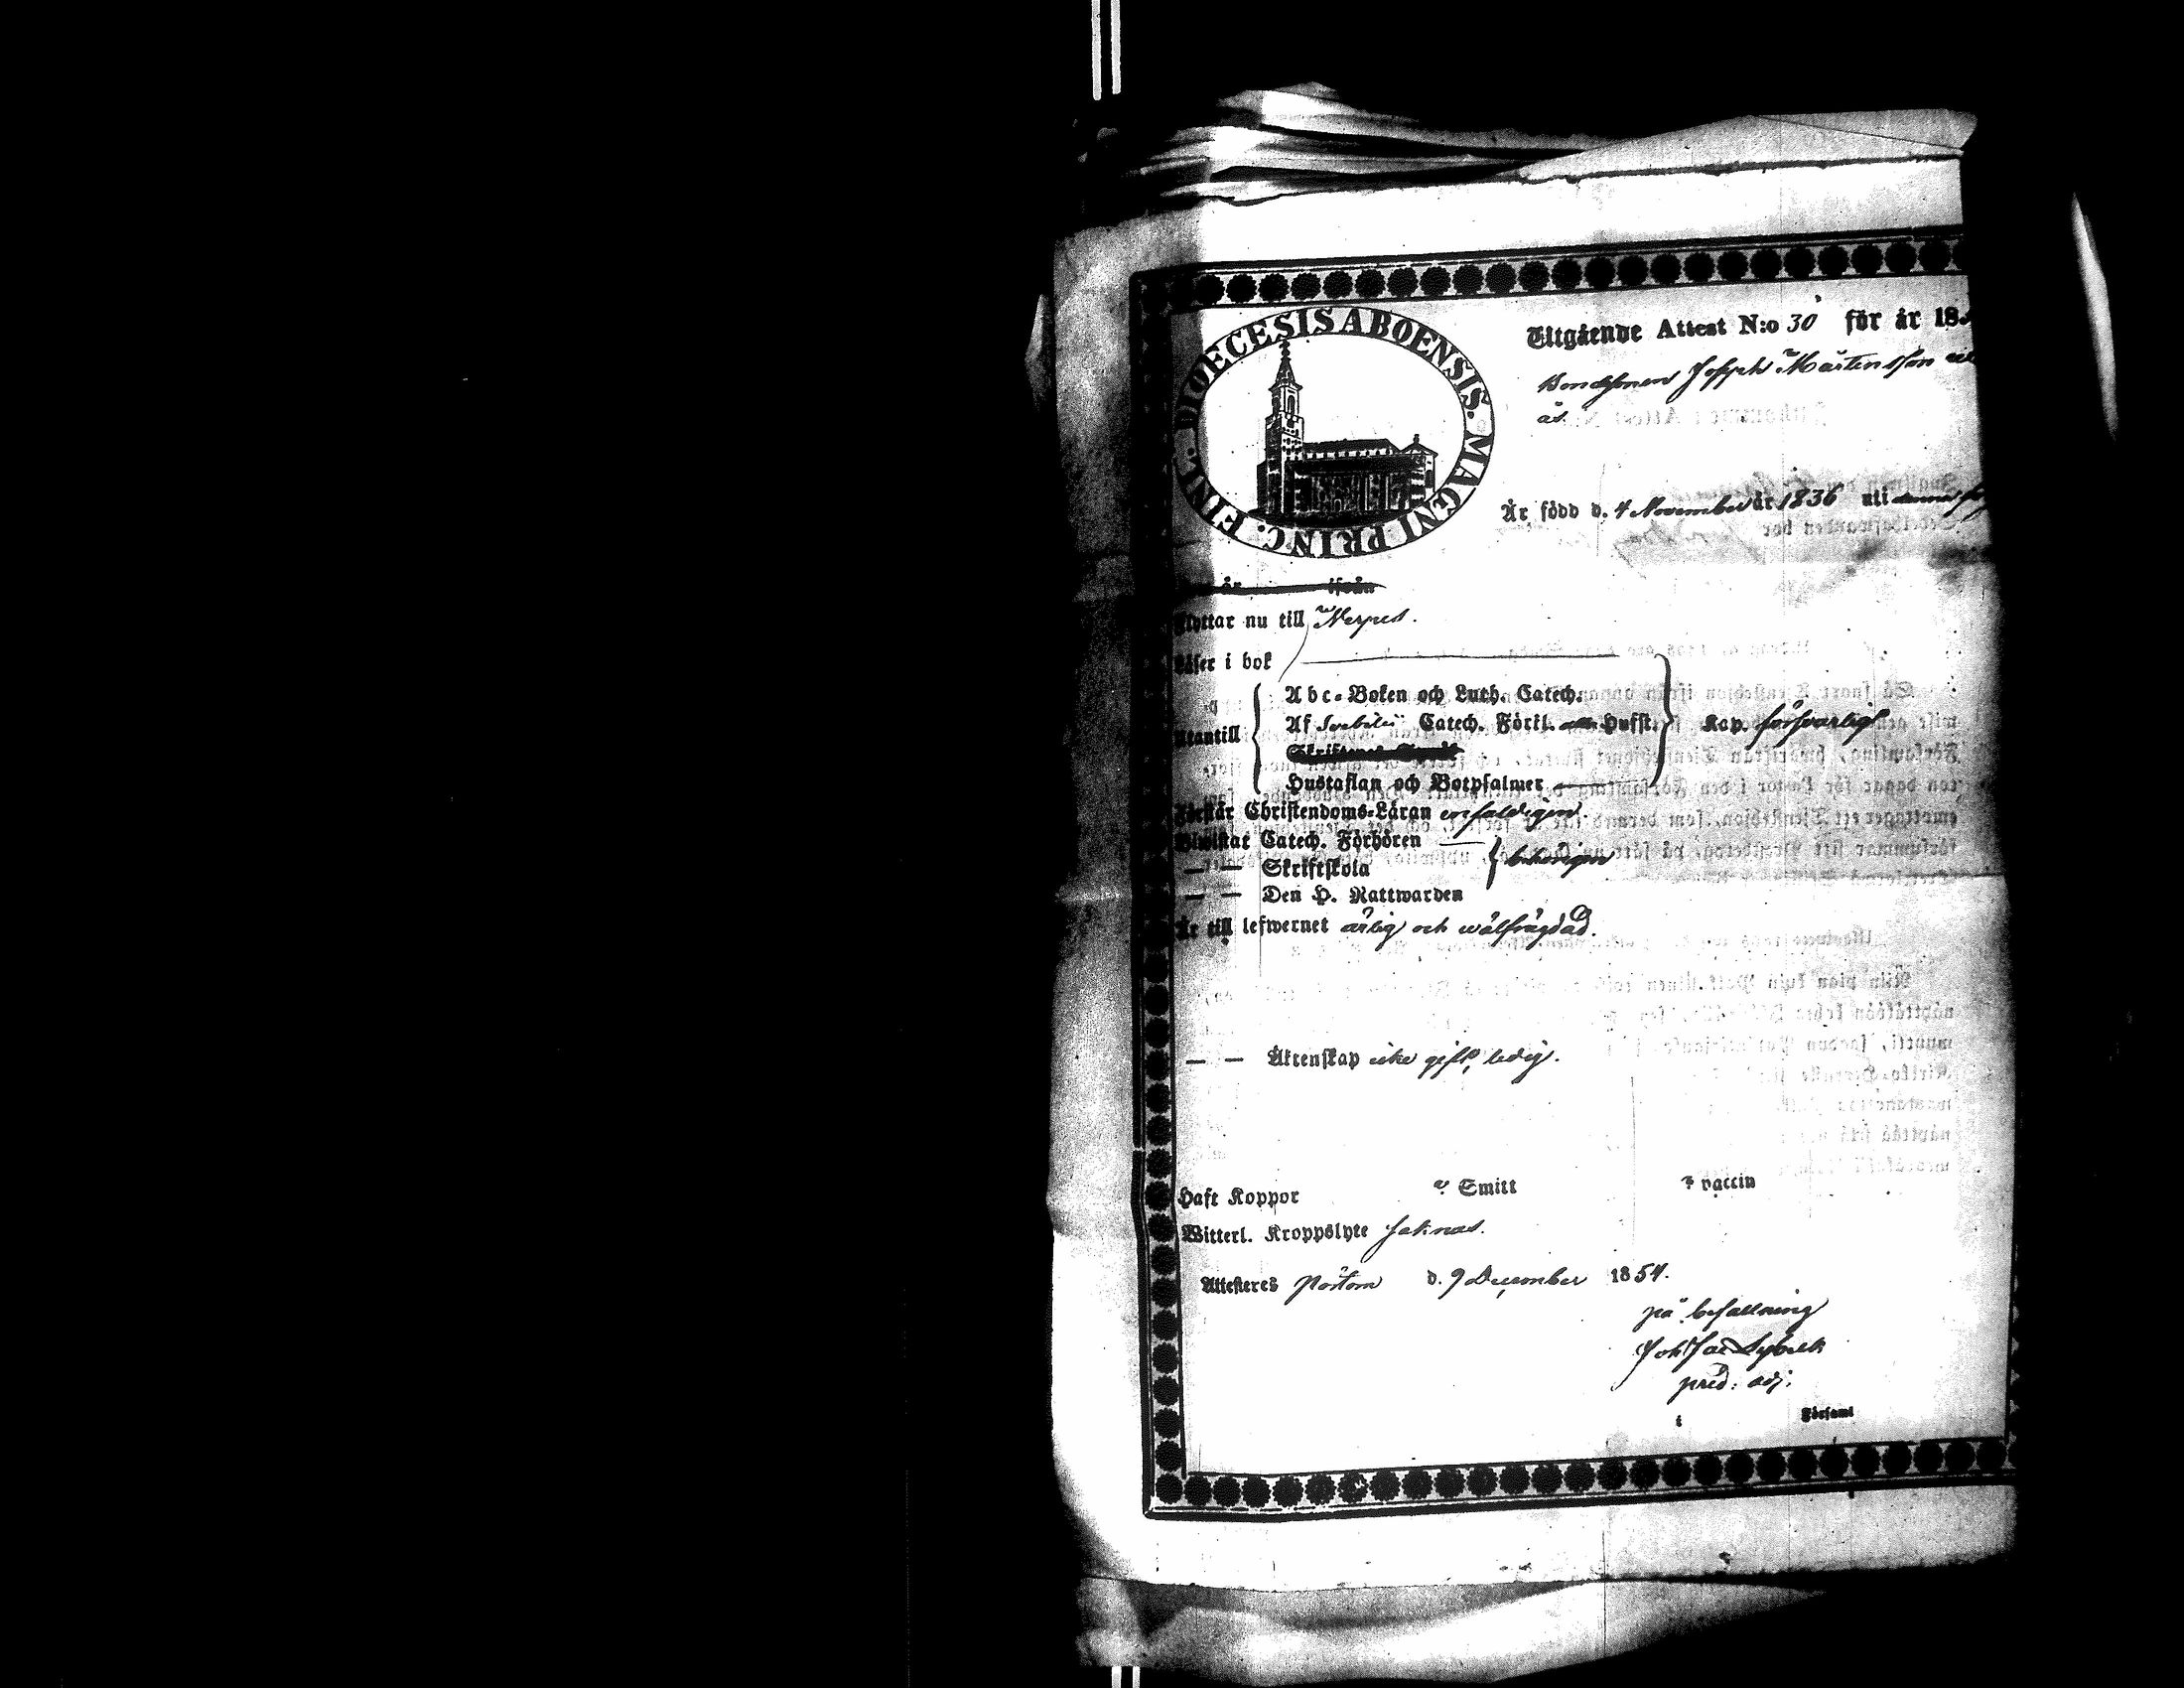 DIOECESIS ABOENSIS. MAGNI PRINC. FINL.
Utgående Attest N:o 30 för år 18
Bondesonen Joseph Mårtensson
ås.
Är född d. 4 November år 1836 uti denna
år ifrån
Flyttar nu till Nerpes.
Läser i bok
Abc-Boken och Luth. Catech.
Utantill Af Svebilii Catech. Förkl. Husst. Kap. försvarligt
Hustaflan och Botpsalmer
Förstår Christendoms-Läran enfaldigen.
Biwistat Catech. Förhören
— — Skriftskola behörigen
— — Den H. Nattwarden
Är till lefwernet ärlig och wälfrägdad.
— — Äktenskap icke gift, ledig.
Haft Koppor Smitt vaccin
Witterl. Kroppslyte saknas.
Attesteres Pörtom d. 9 December 1854.
på befallning
Joh Jac Lybeck
pred: adj.
i Församl